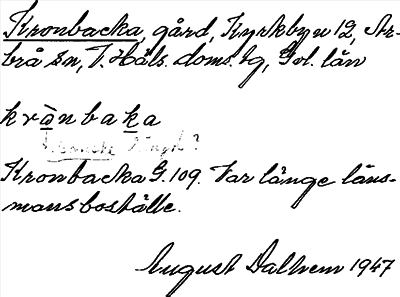 Kronbacka, gård, Kyrkbyn 12, Ar-
brå sn, V. Häls. doms. tg, Gvl. län
krànbaka
Kronbacka G. 109. Var länge läns-
mansboställe.
August Dalhem 1947